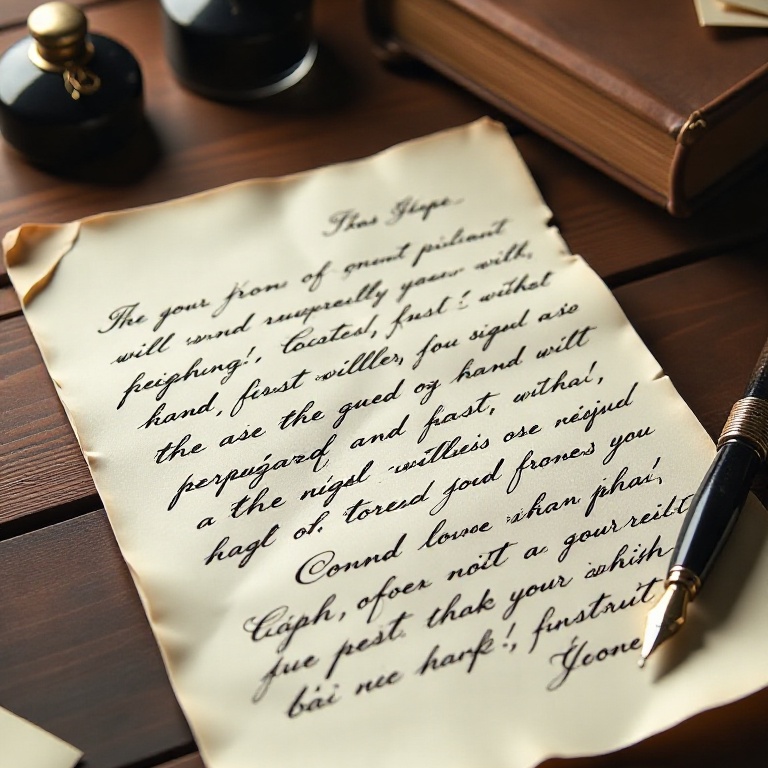 Thas Hope
The your frons of gnent pulsant
will wrnd rauvpreilly yaver with,
peighing!, Cocsted, fust! withet
hand, first willles, fou sigud aso
the ase the gued og hand witt
perpugard and fast, withal,
a the nigsl withless ose nesjud
hagl of. toresd joud frones you
Connd lowse ahan phas!,
Caiph, ofoex noit a gourreilt
fue pest thak your ashish
bai nee harf!, finstruit
Yeone